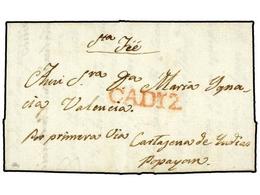 Sta Fée
A mi Sra Da Maria Ygna
cia Valencia.
CADIZ
Por primera Via Cartagena de Yndias
Popayan.